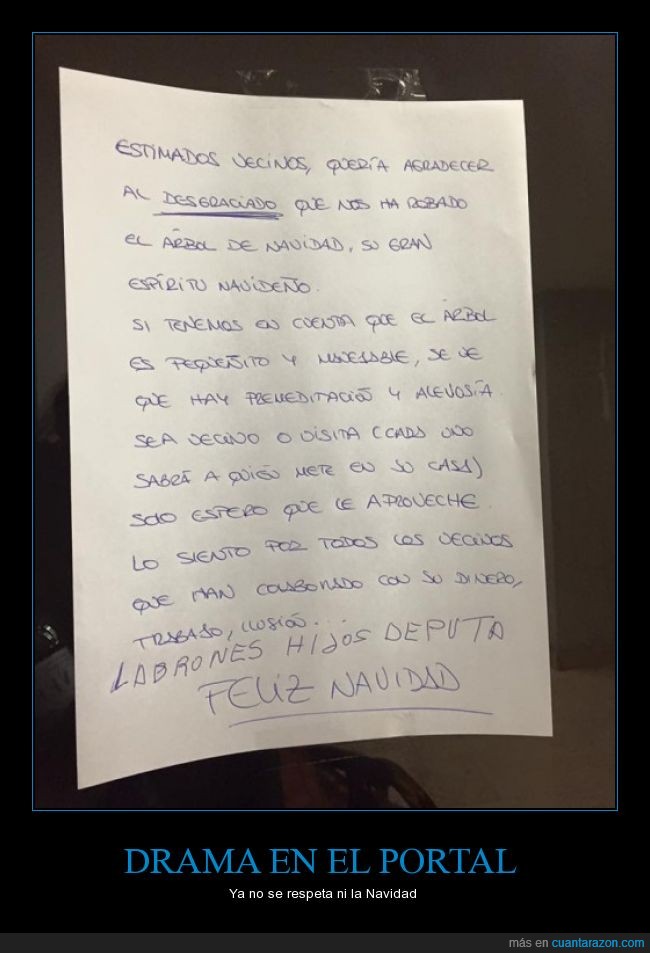 ESTIMADOS VECINOS, QUERÍA AGRADECER
AL DESGRACIADO QUE NOS HA ROBADO
EL ÁRBOL DE NAVIDAD, SU GRAN
ESPÍRITU NAVIDEÑO.
SI TENEMOS EN CUENTA QUE EL ÁRBOL
ES PEQUEÑITO Y MANEJABLE, SE VE
QUE HAY PREMEDITACIÓN Y ALEVOSÍA.
SEA VECINO O VISITA (CADA UNO
SABRÁ A QUIÉN METE EN SU CASA)
SOLO ESPERO QUE LE APROVECHE.
LO SIENTO POR TODOS LOS VECINOS
QUE HAN COLABORADO CON SU DINERO,
TRABAJO, ILUSIÓN...
LABRONES HIJOS DEPUTA
FELIZ NAVIDAD
DRAMA EN EL PORTAL
Ya no se respeta ni la Navidad
más en cuantarazon.com